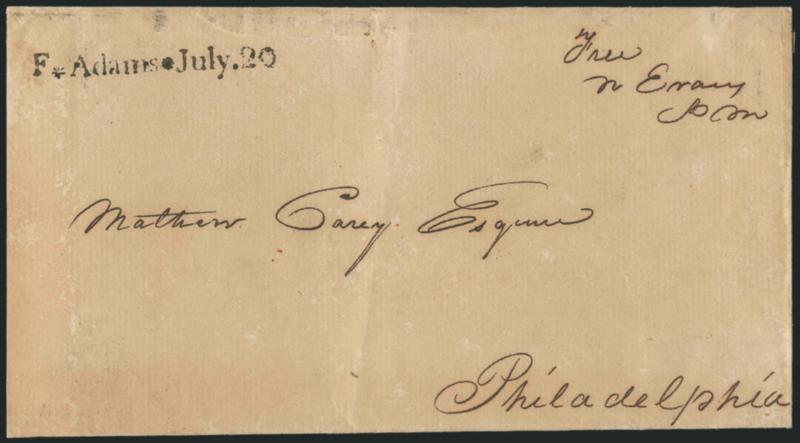 F* Adams•July.20
Free
N Evans
P M
Mathew Carey Esquire
Philadelphia